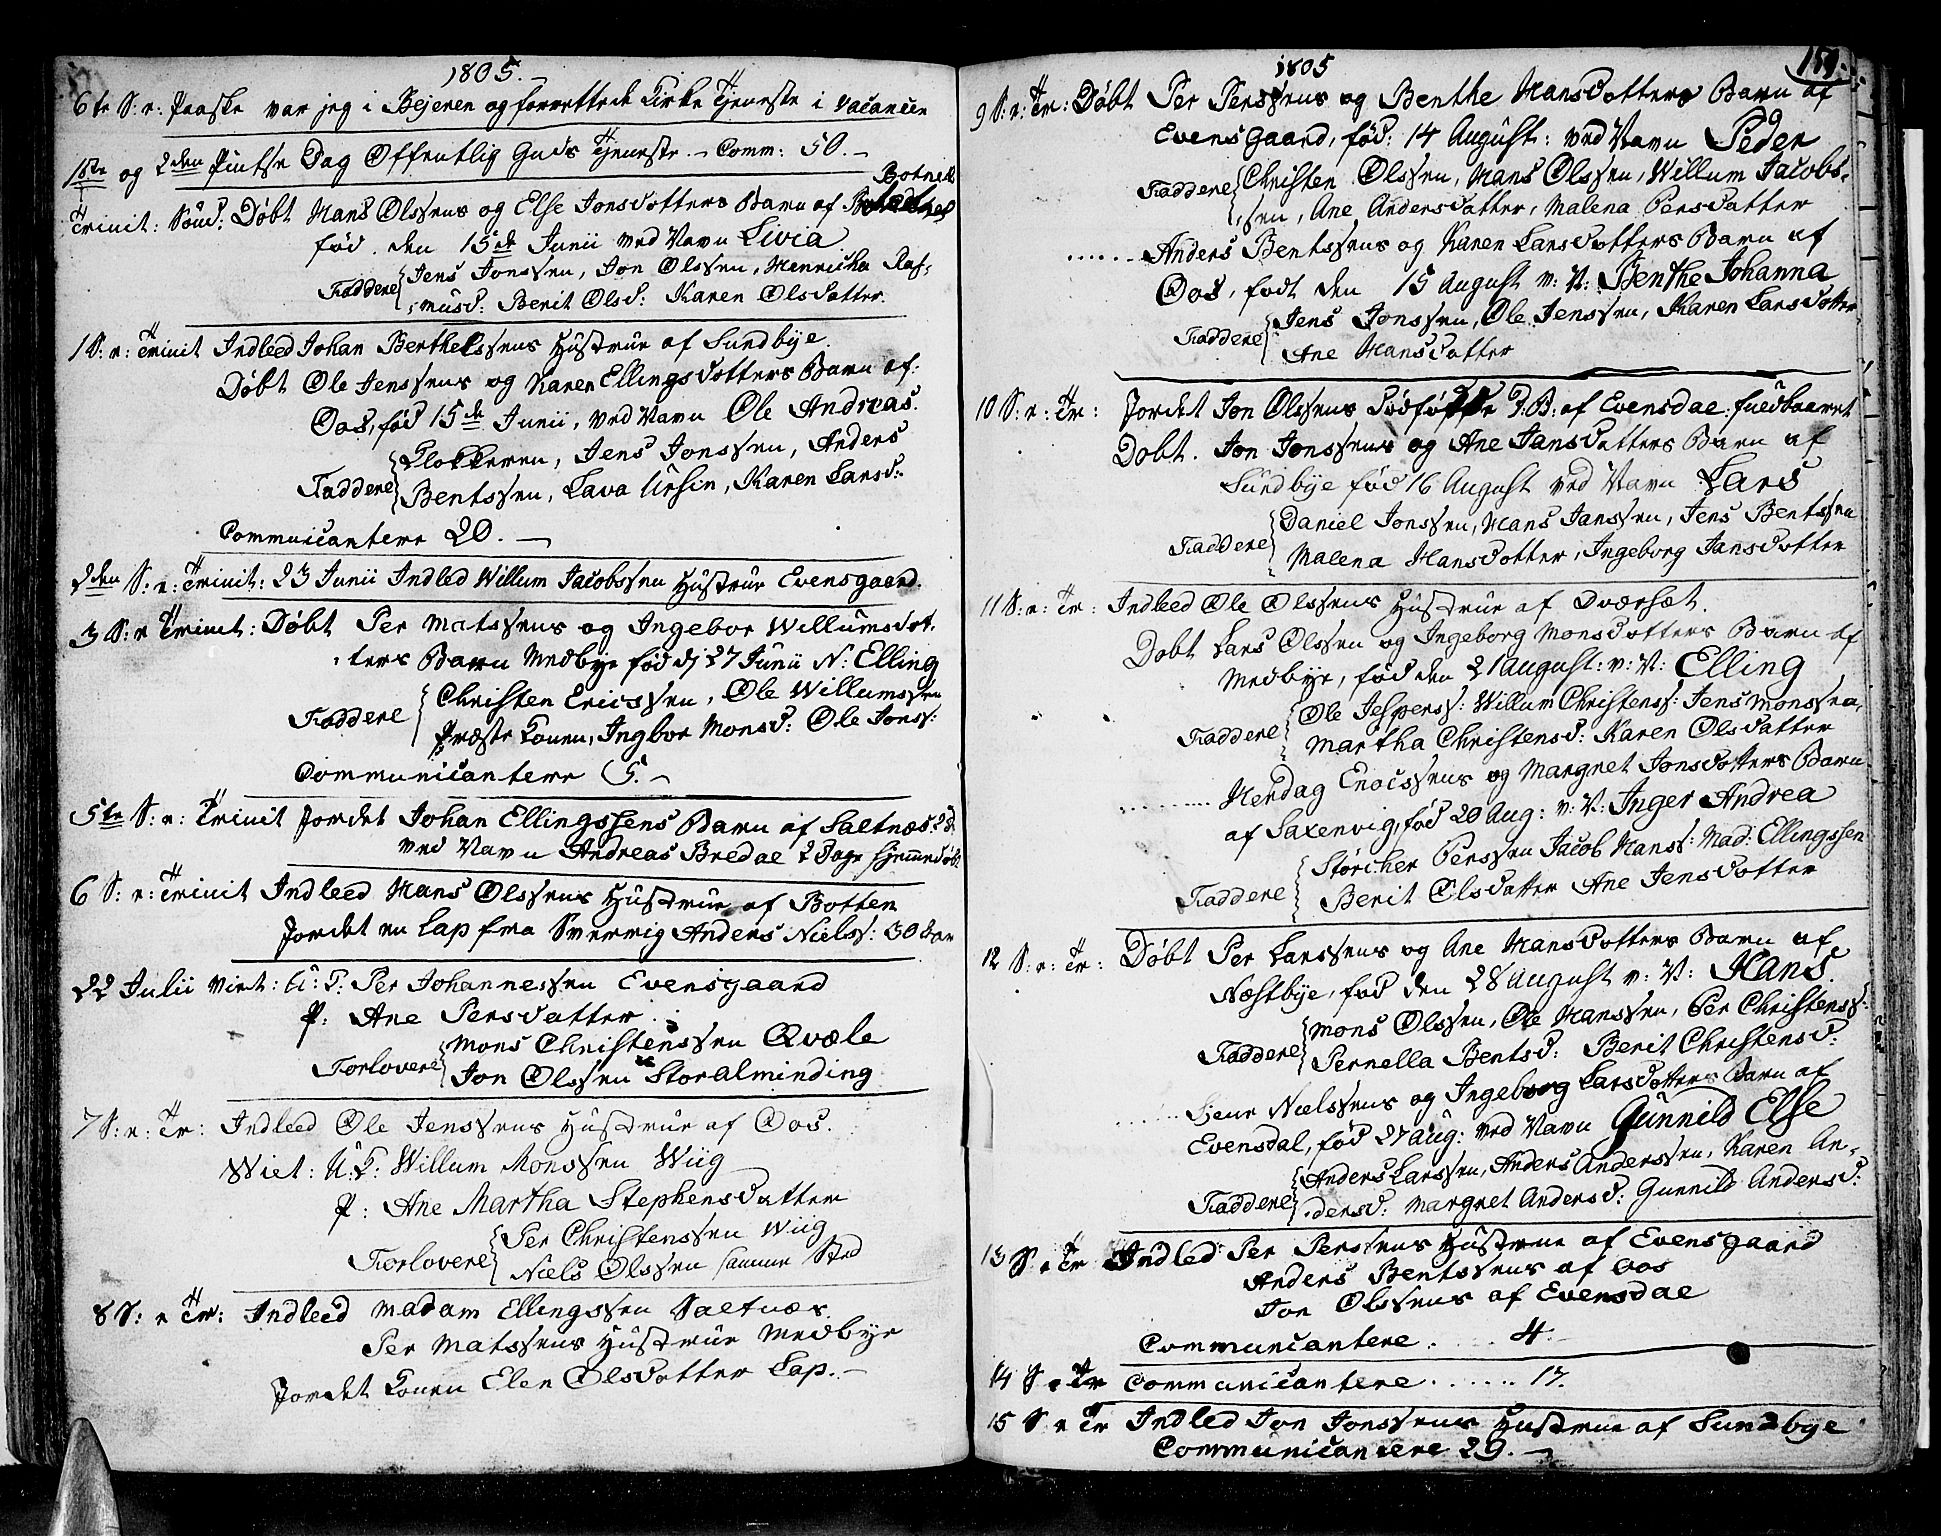 1805.
6te S: e: Paaske var jeg i Bejeren og forrettede Kirke Tjeneste i vacancen
1ste og 2den Pintse Dag Offentlig Guds Tjeneste. - Comm: 50. -
Botnen
Trinit: Sønd: Døbt Hans Olssens og Else Jonsdotters Barn af
fød den 15de Junii ved Navn Livia
Faddere Jens Jonssen, Jon Olssen, Henricha Ras-
musd: Berit Olsd: Karen Olsdatter.
1 S: e: Trinit Indleed Johan Berthelssens Hustrue af Sundbye.
Døbt Ole Jenssens og Karen Ellingsdotters Barn af
Oos, fød 15de Junii, ved Navn Ole Andreas.
Klokkeren, Jens Jonssen, Anders
Faddere
Bentssen, Lava Ursin, Karen Larsd:
Communicantere 20. -
2den S: e: Trinit: 23 Junii Indled Willum Jacobssen Hustrue Evensgaard.
3 S: e Trinit: Døbt Per Matssens og Ingebor Willumsdot-
ters Barn Medbye fød d 27 Junii N: Elling
Christen Ericssen, Ole Willumssen
Faddere
Præste Konen, Ingbor Monsd: Ole Jonss:
Communicantere 5. -
5te S: e: Trinit Jordet Johan Ellingssens Barn af Saltnæs
ved Navn Andreas Bredal 2 Dage hjemmedøbt
6 S: e: Trinit Indleed Hans Olssens Hustrue af Botten
Jordet en Lap fra Sverrig Anders Nielss: 30 Aar
22 Julii Viet: U: K: Per Johannessen Evensgaard
P: Ane Persdatter
Mons Christenssen Qvæle
Forlovere
Jon Olssen Storalminding
7 S: e: Tr: Indleed Ole Jenssens Hustrue af Oos.
Wiet: U: K: Willum Monssen Wiig
P: Ane Martha Stephensdatter
Per Christenssen Wiig
Forlovere
Niels Olssen samme Sted
8 S: e Tr: Indleed Madam Ellingssen Saltnæs
Per Matssens Hustrue Medbye
Jordet Konen Elen Olsdotter Lap. -
1805
159.
9 S: e: Tr: Døbt Per Perssens og Benthe Hansdotters Barn af
Evensgaard, fød: 14 August: ved Navn Peder
Christen Olssen, Hans Olssen, Willum Jacobs-
Faddere
sen, Ane Andersdatter, Malena Persdatter
Anders Bentssens og Karen Larsdotters Barn af
Oos, født den 15 August v: N: Benthe Johanna
Jens Jonssen, Ole Jenssen, Karen Larsdotter
Faddere
Ane Hansdotter
10 S: e: Tr: Jordet Jon Olssens D: B: af Evensdal
Døbt. Jon Jonssens og Ane Jansdatters Barn af
Sundbye fød 16 August ved Navn Lars
Daniel Jonssen, Hans Janssen, Jens Bentssen
Faddere
Malena Hansdotter, Ingeborg Jansdotter
11 S: e: Tr: Indleed Ole Olssens Hustrue af Oversæt.
Døbt Lars Olssen og Ingeborg Monsdotters Barn af
Medbye, fød den 21 August: v: N: Elling
Ole Jesperss: Willum Christenss: Jens Monssen,
Faddere
Martha Christensd: Karen Olsdatter
Hendag Enocssens og Margret Jonsdotters Barn
af Saxenvig, fød 20 Aug: v: N: Inger Andrea
Størcher Perssen Jacob Hanss: Mad: Ellingssen
Faddere
Berit Olsdatter Ane Jensdotter
12 S: e: Tr: Døbt Per Larssens og Ane Hansdotters Barn af
Næstbye, fød den 28 August v: N: Hans
Mons Olssen, Ole Hanssen, Per Christenss:
Faddere
Pernella Bentsd: Berit Christensd:
Nielssens og Ingeborg Larsdotters Barn af
Evensdal, fød 27 Aug: ved Navn Gunnild Else
Anders Larssen, Anders Anderssen, Karen An-
Faddere
dersd: Margret Andersd: Gunnild Andersd:
13 S e Tr Indled Per Perssens Hustrue af Evensgaard
Anders Bentssens af Oos
Jon Olssens af Evensdal
Communicantere . . . . 4.
14 S e Tr Communicantere . . . . . . 17.
15 S e Tr Indled Jon Jonssens Hustrue af Sundbye
Communicantere 29. -